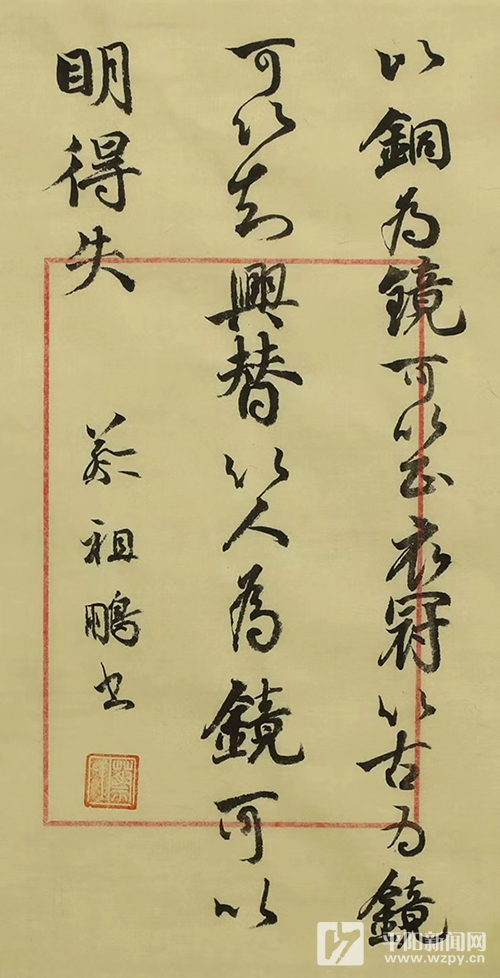 以銅為鏡可以正衣冠以古為鏡
可以知興替以人為鏡可以
明得失
蔡祖鵬书
平阳新闻网
www.wzpy.cn